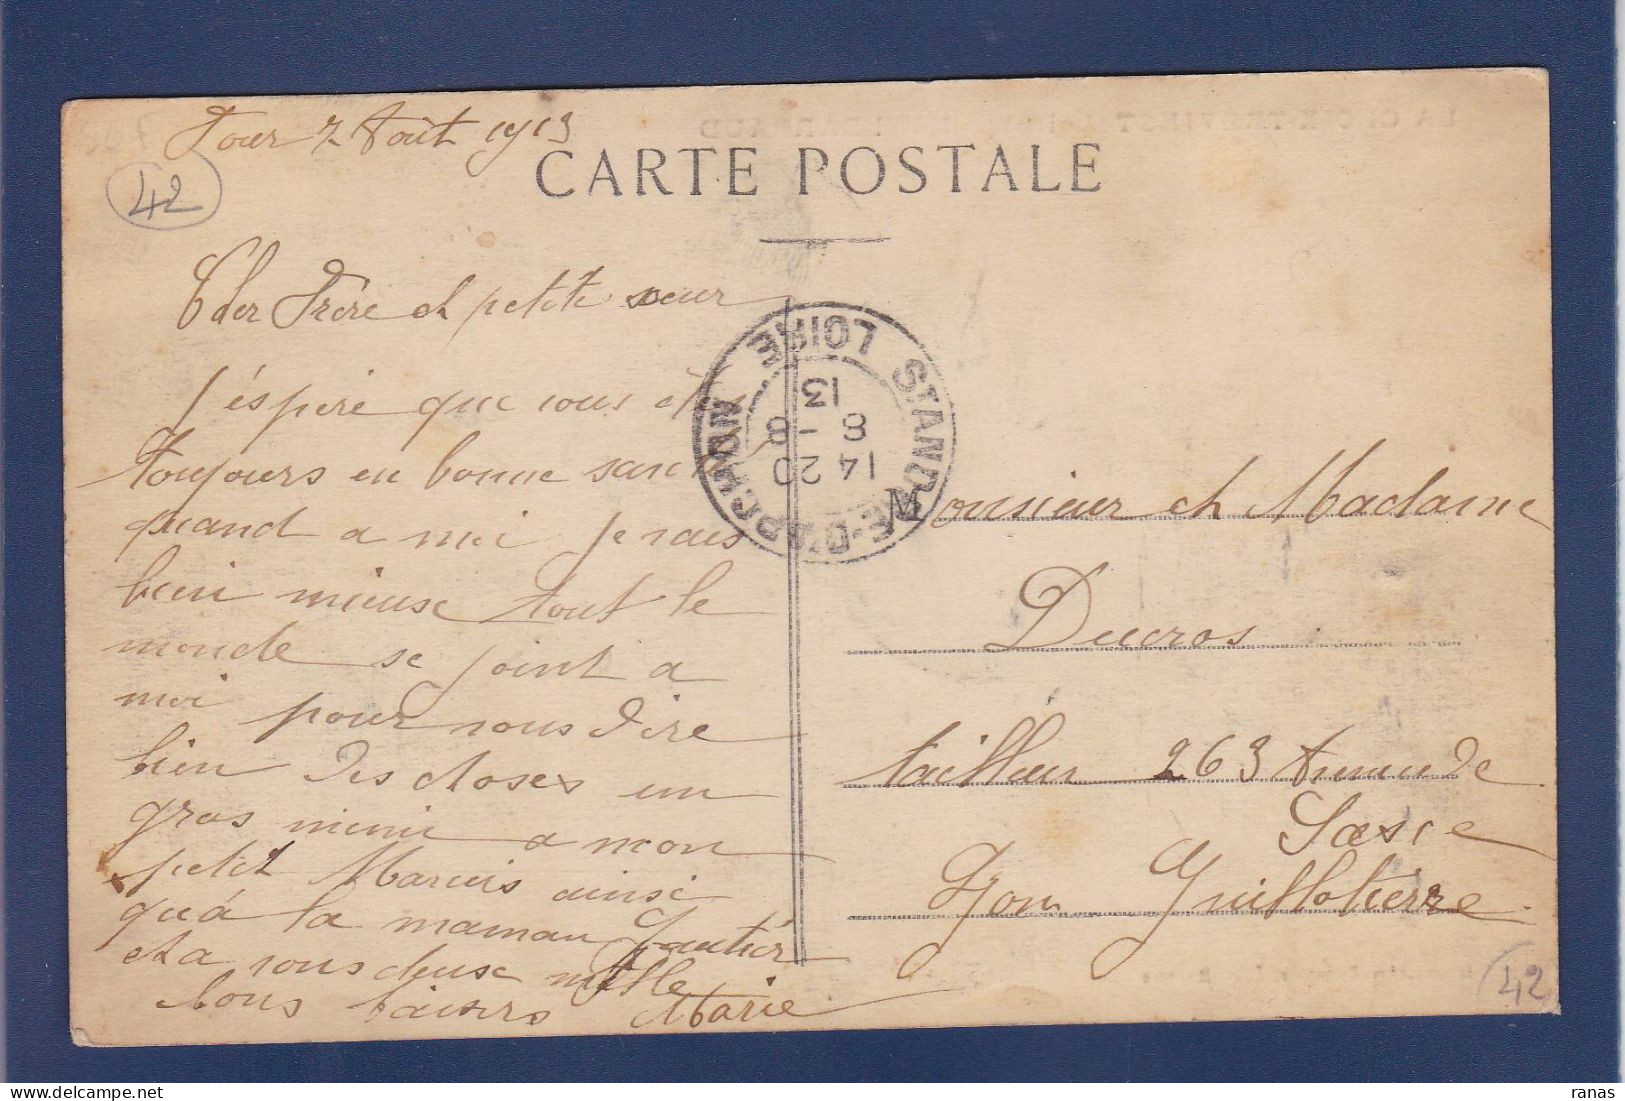 Tour 7 Août 1913
42
CARTE POSTALE
Cher Frère et petite soeur
j'éspère que vous êtes
toujours en bonne santé
quand a moi je vais
bien mieuse tout le
monde se joint a
moi pour vous dire
bien des choses un
gros mimi a mon
petit Marius ainsi
qu'á la maman Gautier
et a vous deuse mille
bons baisers Marie
ST ANDRE-D'APCHON
LOIRE
14 20
8 - 8
13
Monsieur et Madame
Ducros
tailleur 263 Avenue de
Saxe
Lyon Guillotierre
42
ranas